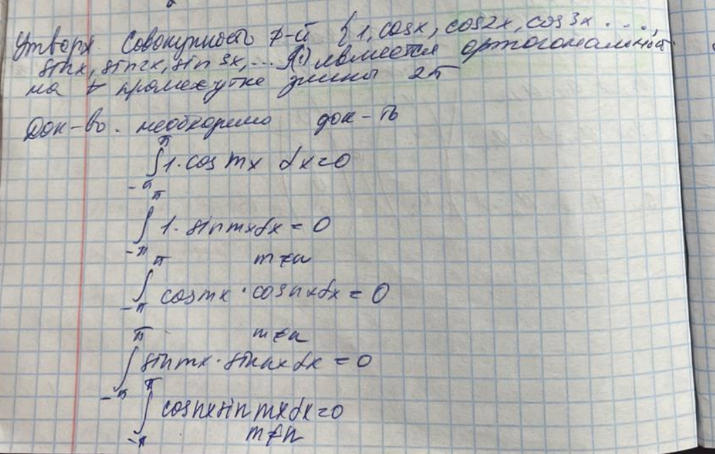 Утверж. Совокупность ф-й {1, cosx, cos2x, cos3x ...,
sinx, sin2x, sin3x, ... } является ортогональной
на ∀ промежутке длины 2π
Док-во. необходимо док-ть
∫_{-π}^{π} 1·cos mx dx = 0
∫_{-π}^{π} 1·sin mx dx = 0
m≠n
∫_{-π}^{π} cos mx · cos nx dx = 0
m≠n
∫_{-π}^{π} sin mx · sin nx dx = 0
∫_{-π}^{π} cos nx sin mx dx = 0
m≠n